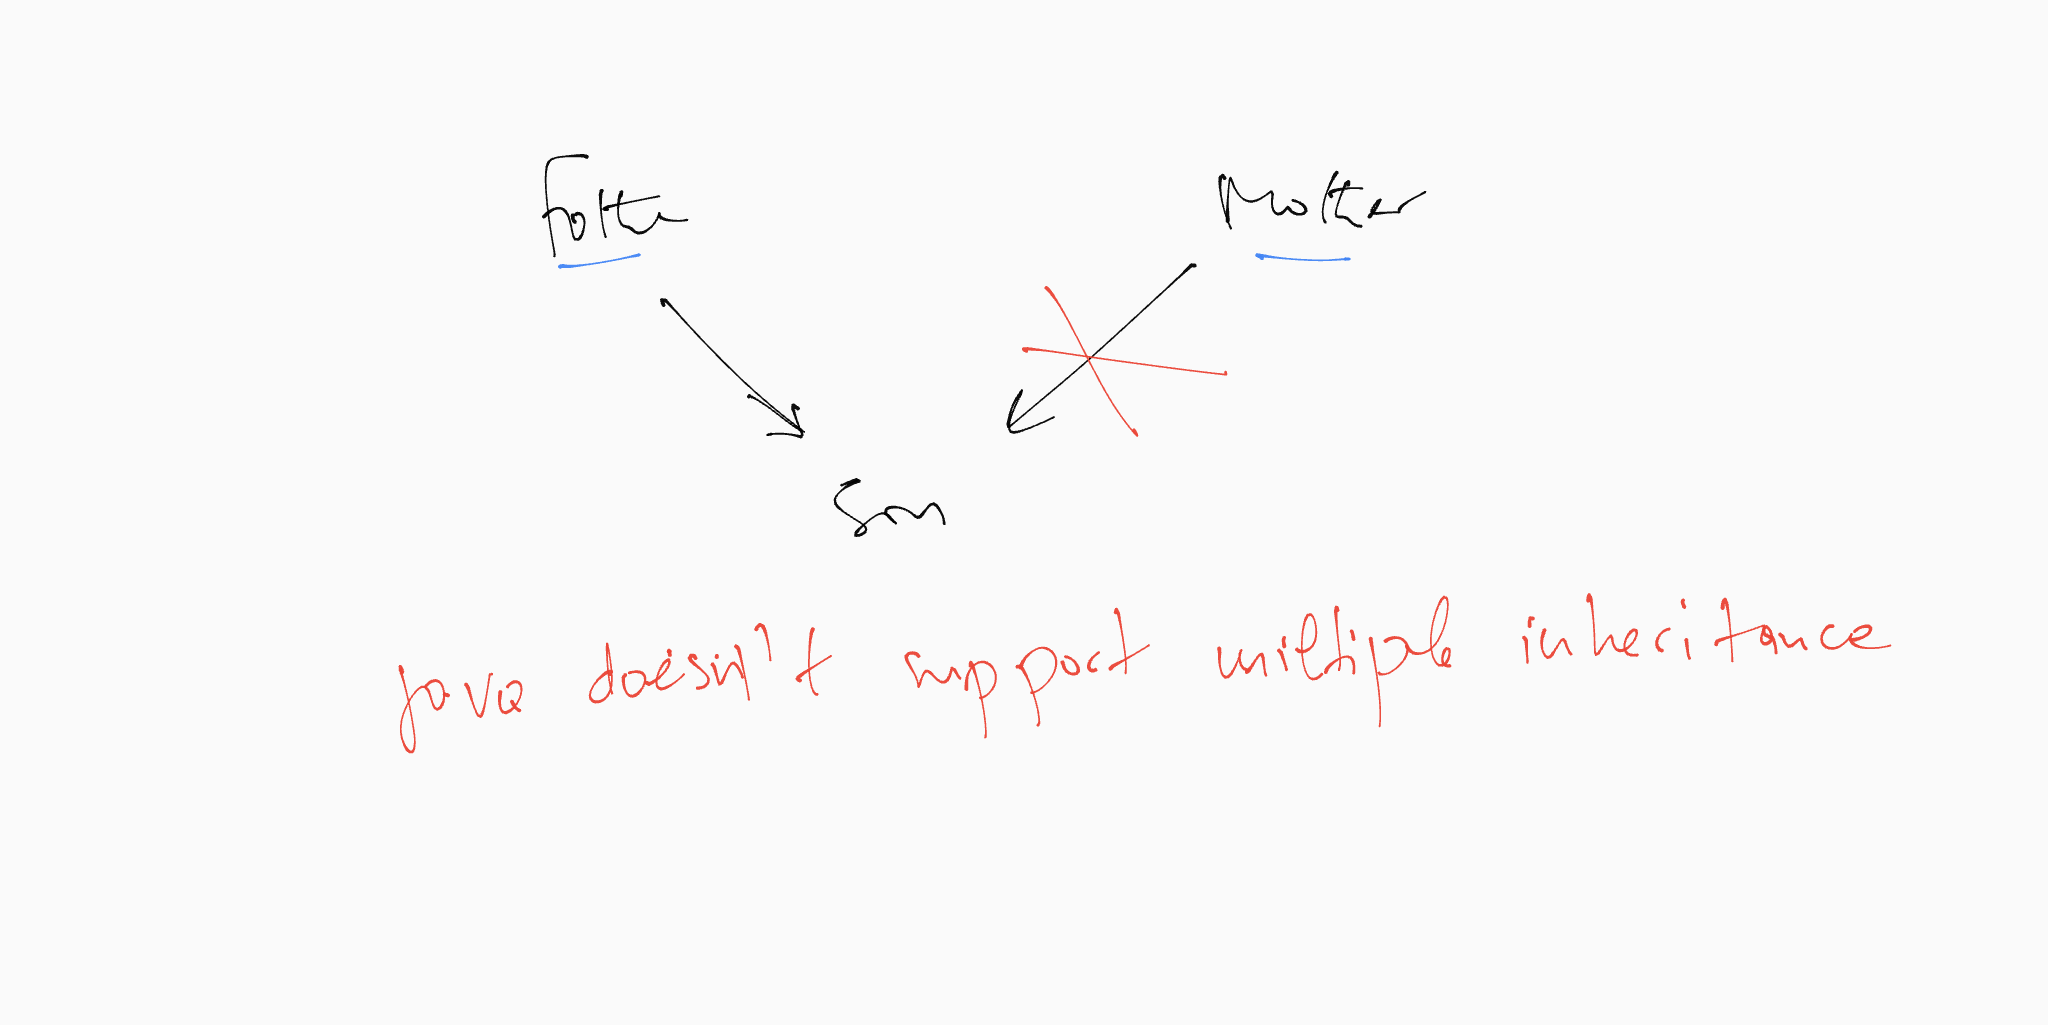 Father
Mother
Son
java doesn't support multiple inheritance